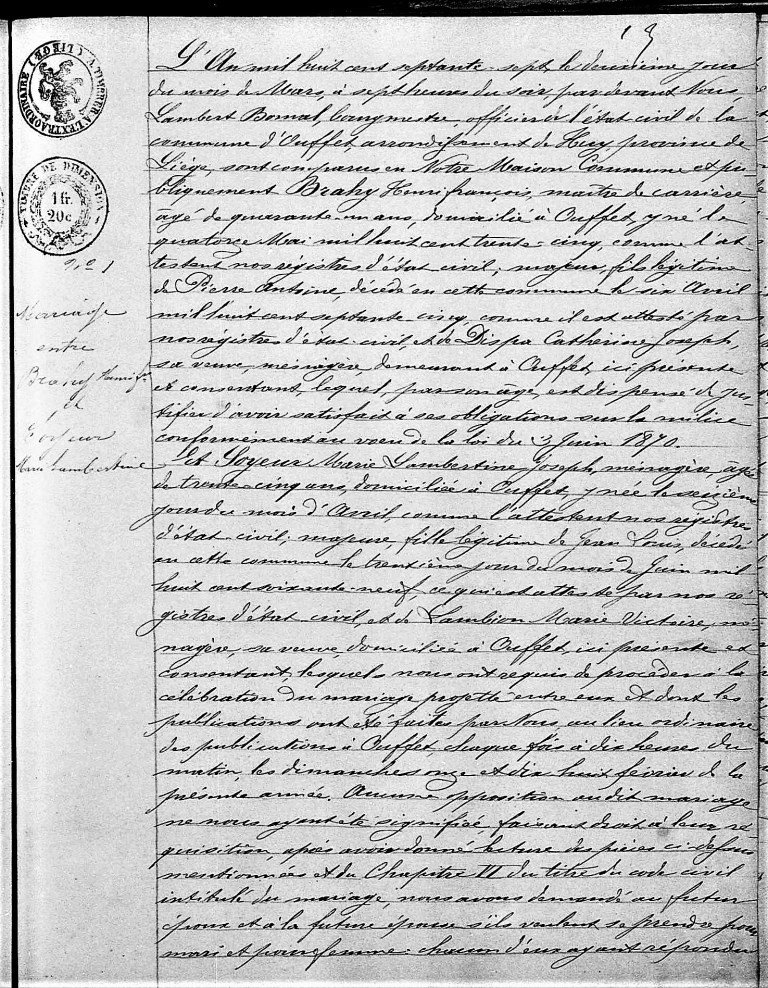 13
A TIMBRER A L'EXTRAORDINAIRE (LIEGE)
TIMBRE DE DIMENSION
1 fr.
20c
N.o 1
Mariage
entre
Brahy Henri fs
et
Soyeur
Marie Lambertine
L'An mil huit cent septante-sept, le deuxième jour
du mois de Mars, à sept heures du soir, par devant Nous
Lambert Bomal, bourgmestre, officier de l'état civil de la
commune d'Ouffet arrondissement de Huy province de
Liége, sont comparus en Notre Maison Commune et pu-
bliquement Brahy Henri françois, maître de carrière,
agé de quarante-un ans, domicilié à Ouffet, y né le
quatorze Mai mil huit cent trente-cinq, comme l'at-
testent nos régistres d'état civil; majeur, fils légitime
de Pierre Antoine, décédé en cette commune le six Avril
mil huit cent septante cinq, comme il est attesté par
nos régistres d'état-civil, et de Dispa Catherine Joseph,
sa veuve, ménagère demeurant à Ouffet, ici présente
et consentant, lequel, par son âge, est dispensé de jus-
tifier d'avoir satisfait à ses obligations sur la milice
conformément au voeu de la loi du 3 Juin 1870.
Et Soyeur Marie Lambertine Joseph, ménagère, agée
de trente-cinq ans, domiciliée à Ouffet, y née le seizième
jour du mois d'Avril, comme l'attestent nos régistres
d'état-civil; majeure, fille légitime de Jean Louis, décédé
en cette commune le trentième jour du mois de Juin mil
huit cent soixante-neuf, ce qui est attesté par nos ré-
gistres d'état-civil, et de Lambion Marie Victoire, mé-
nagère, sa veuve, domiciliée à Ouffet, ici présente et
consentant, lesquels nous ont requis de procéder à la
célébration du mariage projetté entre eux et dont les
publications ont été faites par Nous, au lieu ordinaire
des publications à Ouffet, chaque fois à dix heures du
matin, les dimanches onze et dix huit février de la
présente année. Aucune opposition audit mariage
ne nous ayant été signifiée, faisant droit à leur ré-
quisition, après avoir donné lecture des pièces ci-dessus
mentionnées et du Chapitre VI du titre du code civil
intitulé du mariage, nous avons demandé au futur
époux et à la future épouse s'ils veulent se prendre pour
mari et pour femme: chacun d'eux ayant répondu